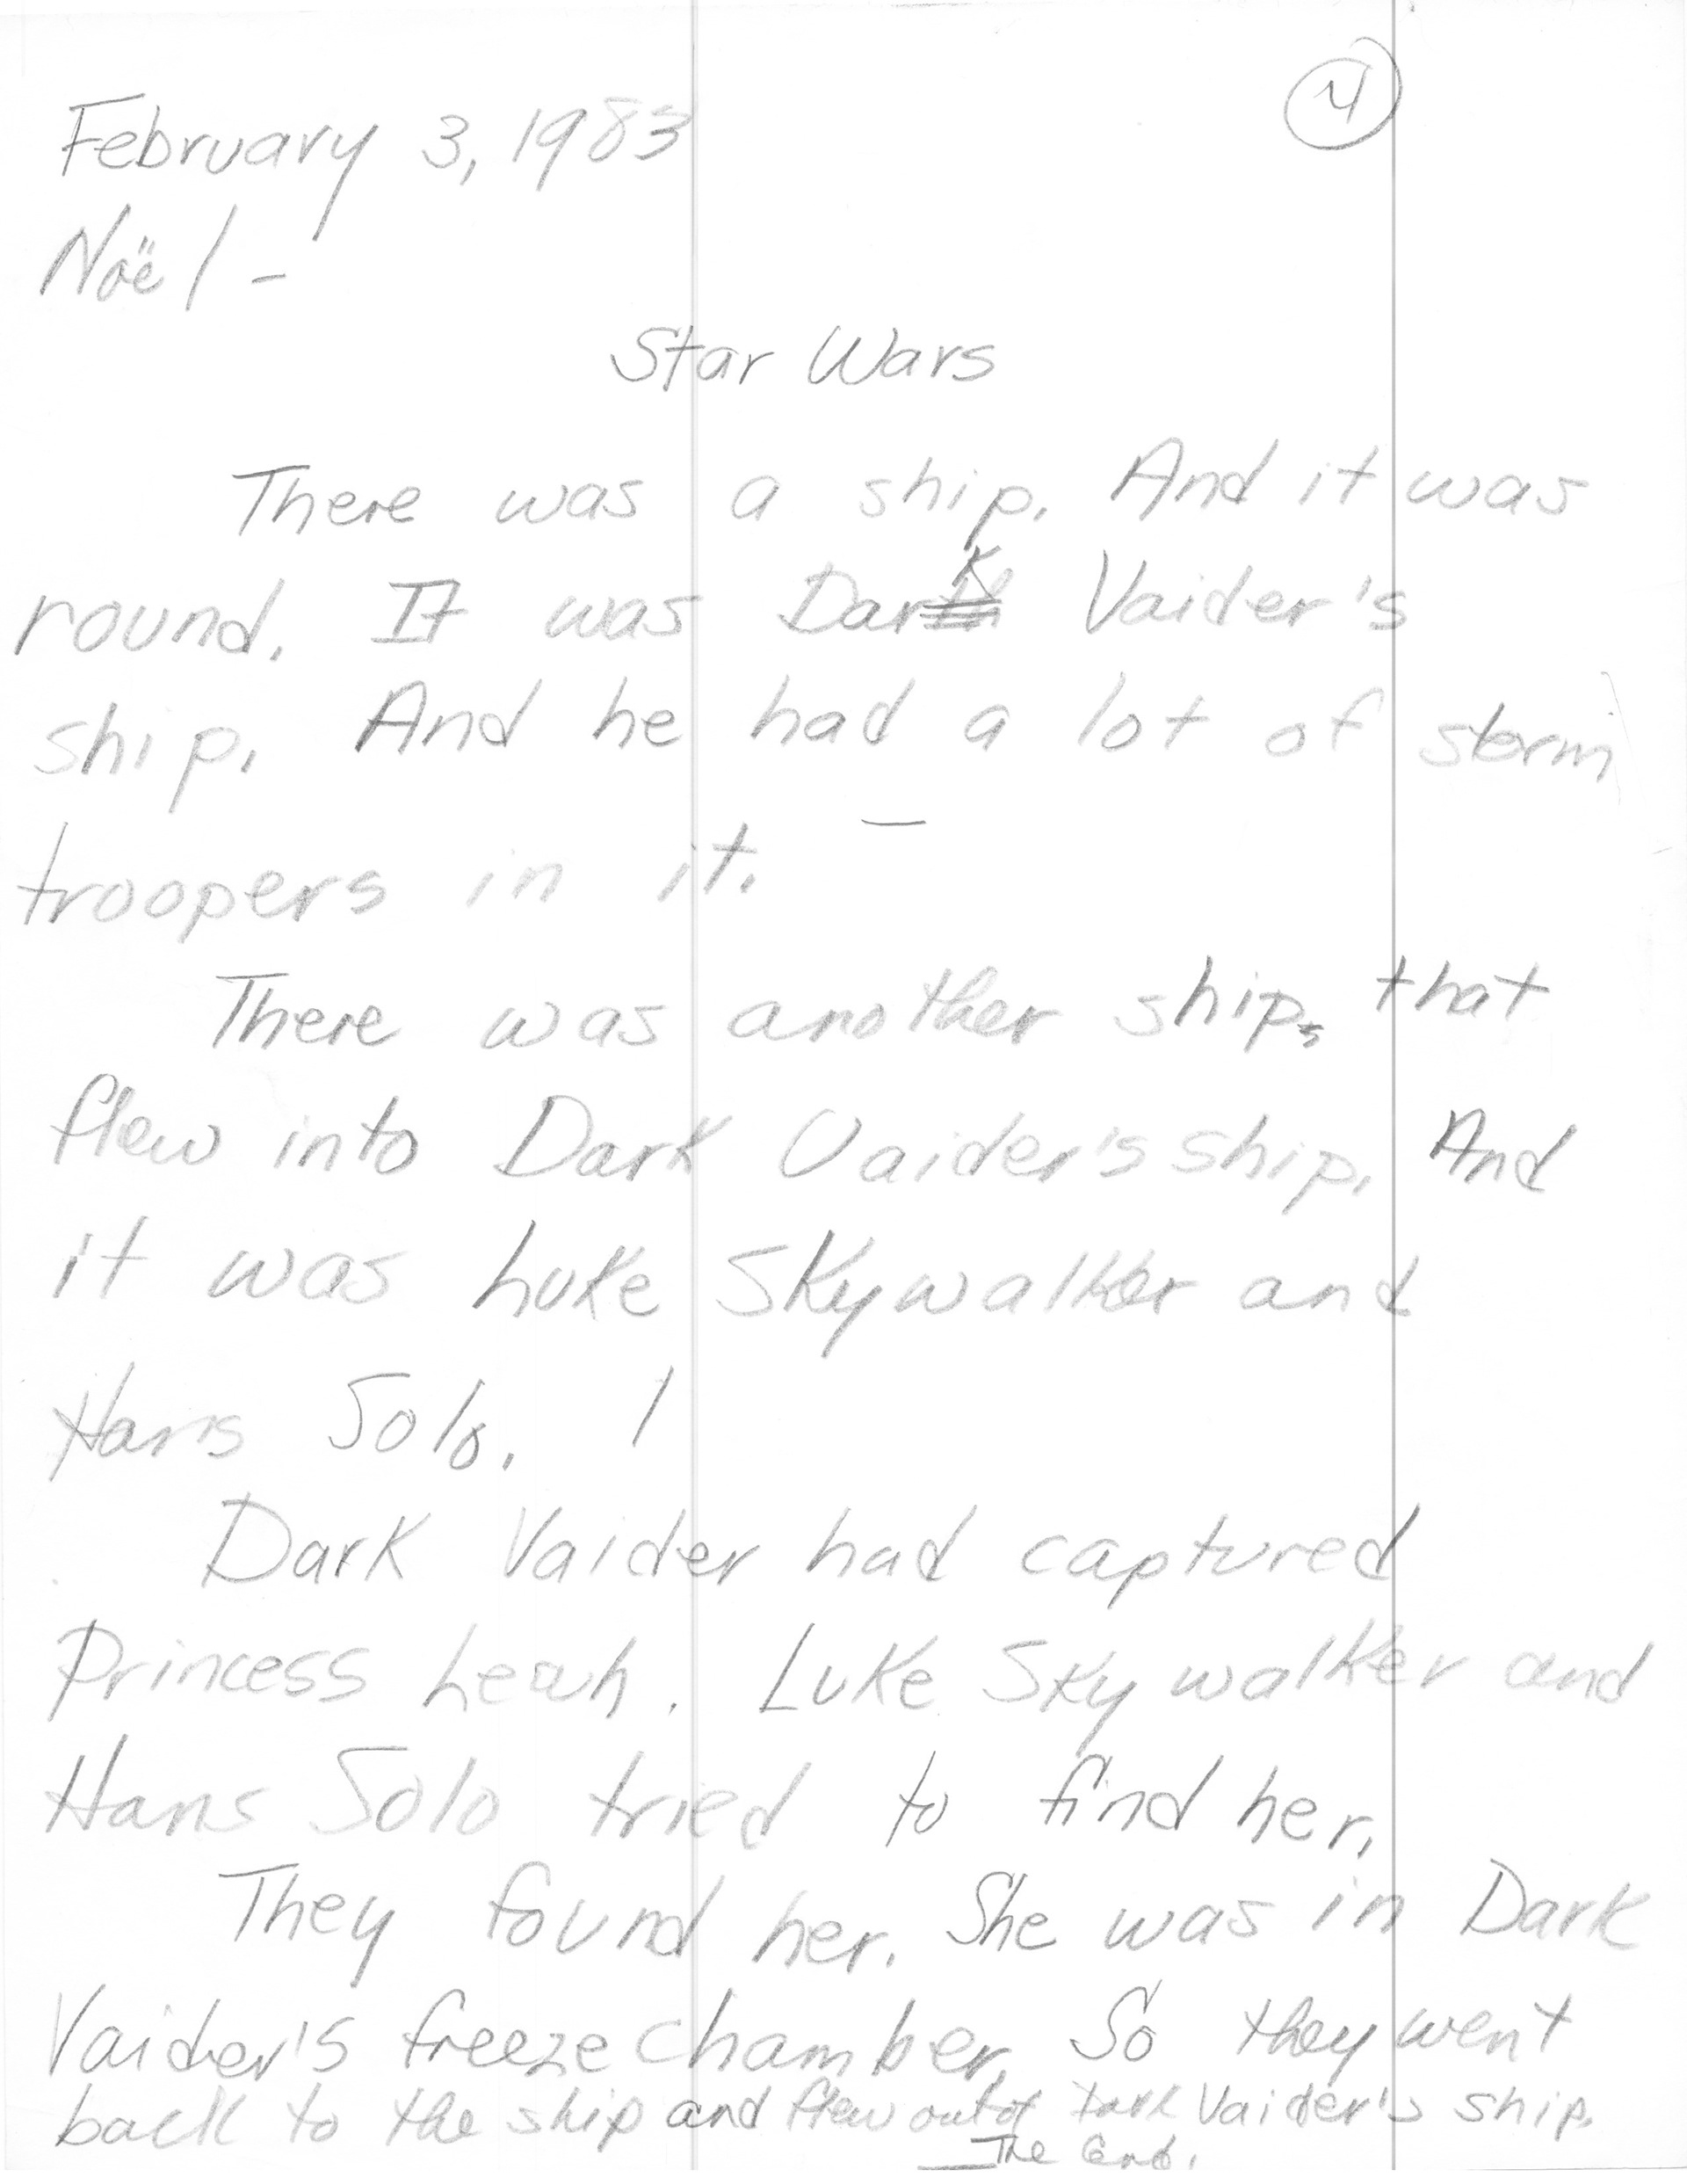 4
February 3, 1983
Noël -
Star Wars
There was a ship. And it was
round. It was Dark Vaider's
ship. And he had a lot of storm
troopers in it.
There was another ship, that
flew into Dark Vaider's ship. And
it was Luke Skywalker and
Hans Solo.
Dark Vaider had captured
Princess Leah. Luke Skywalker and
Hans Solo tried to find her.
They found her. She was in Dark
Vaider's freeze chamber. So they went
back to the ship and flew out of Dark Vaider's ship.
The End.